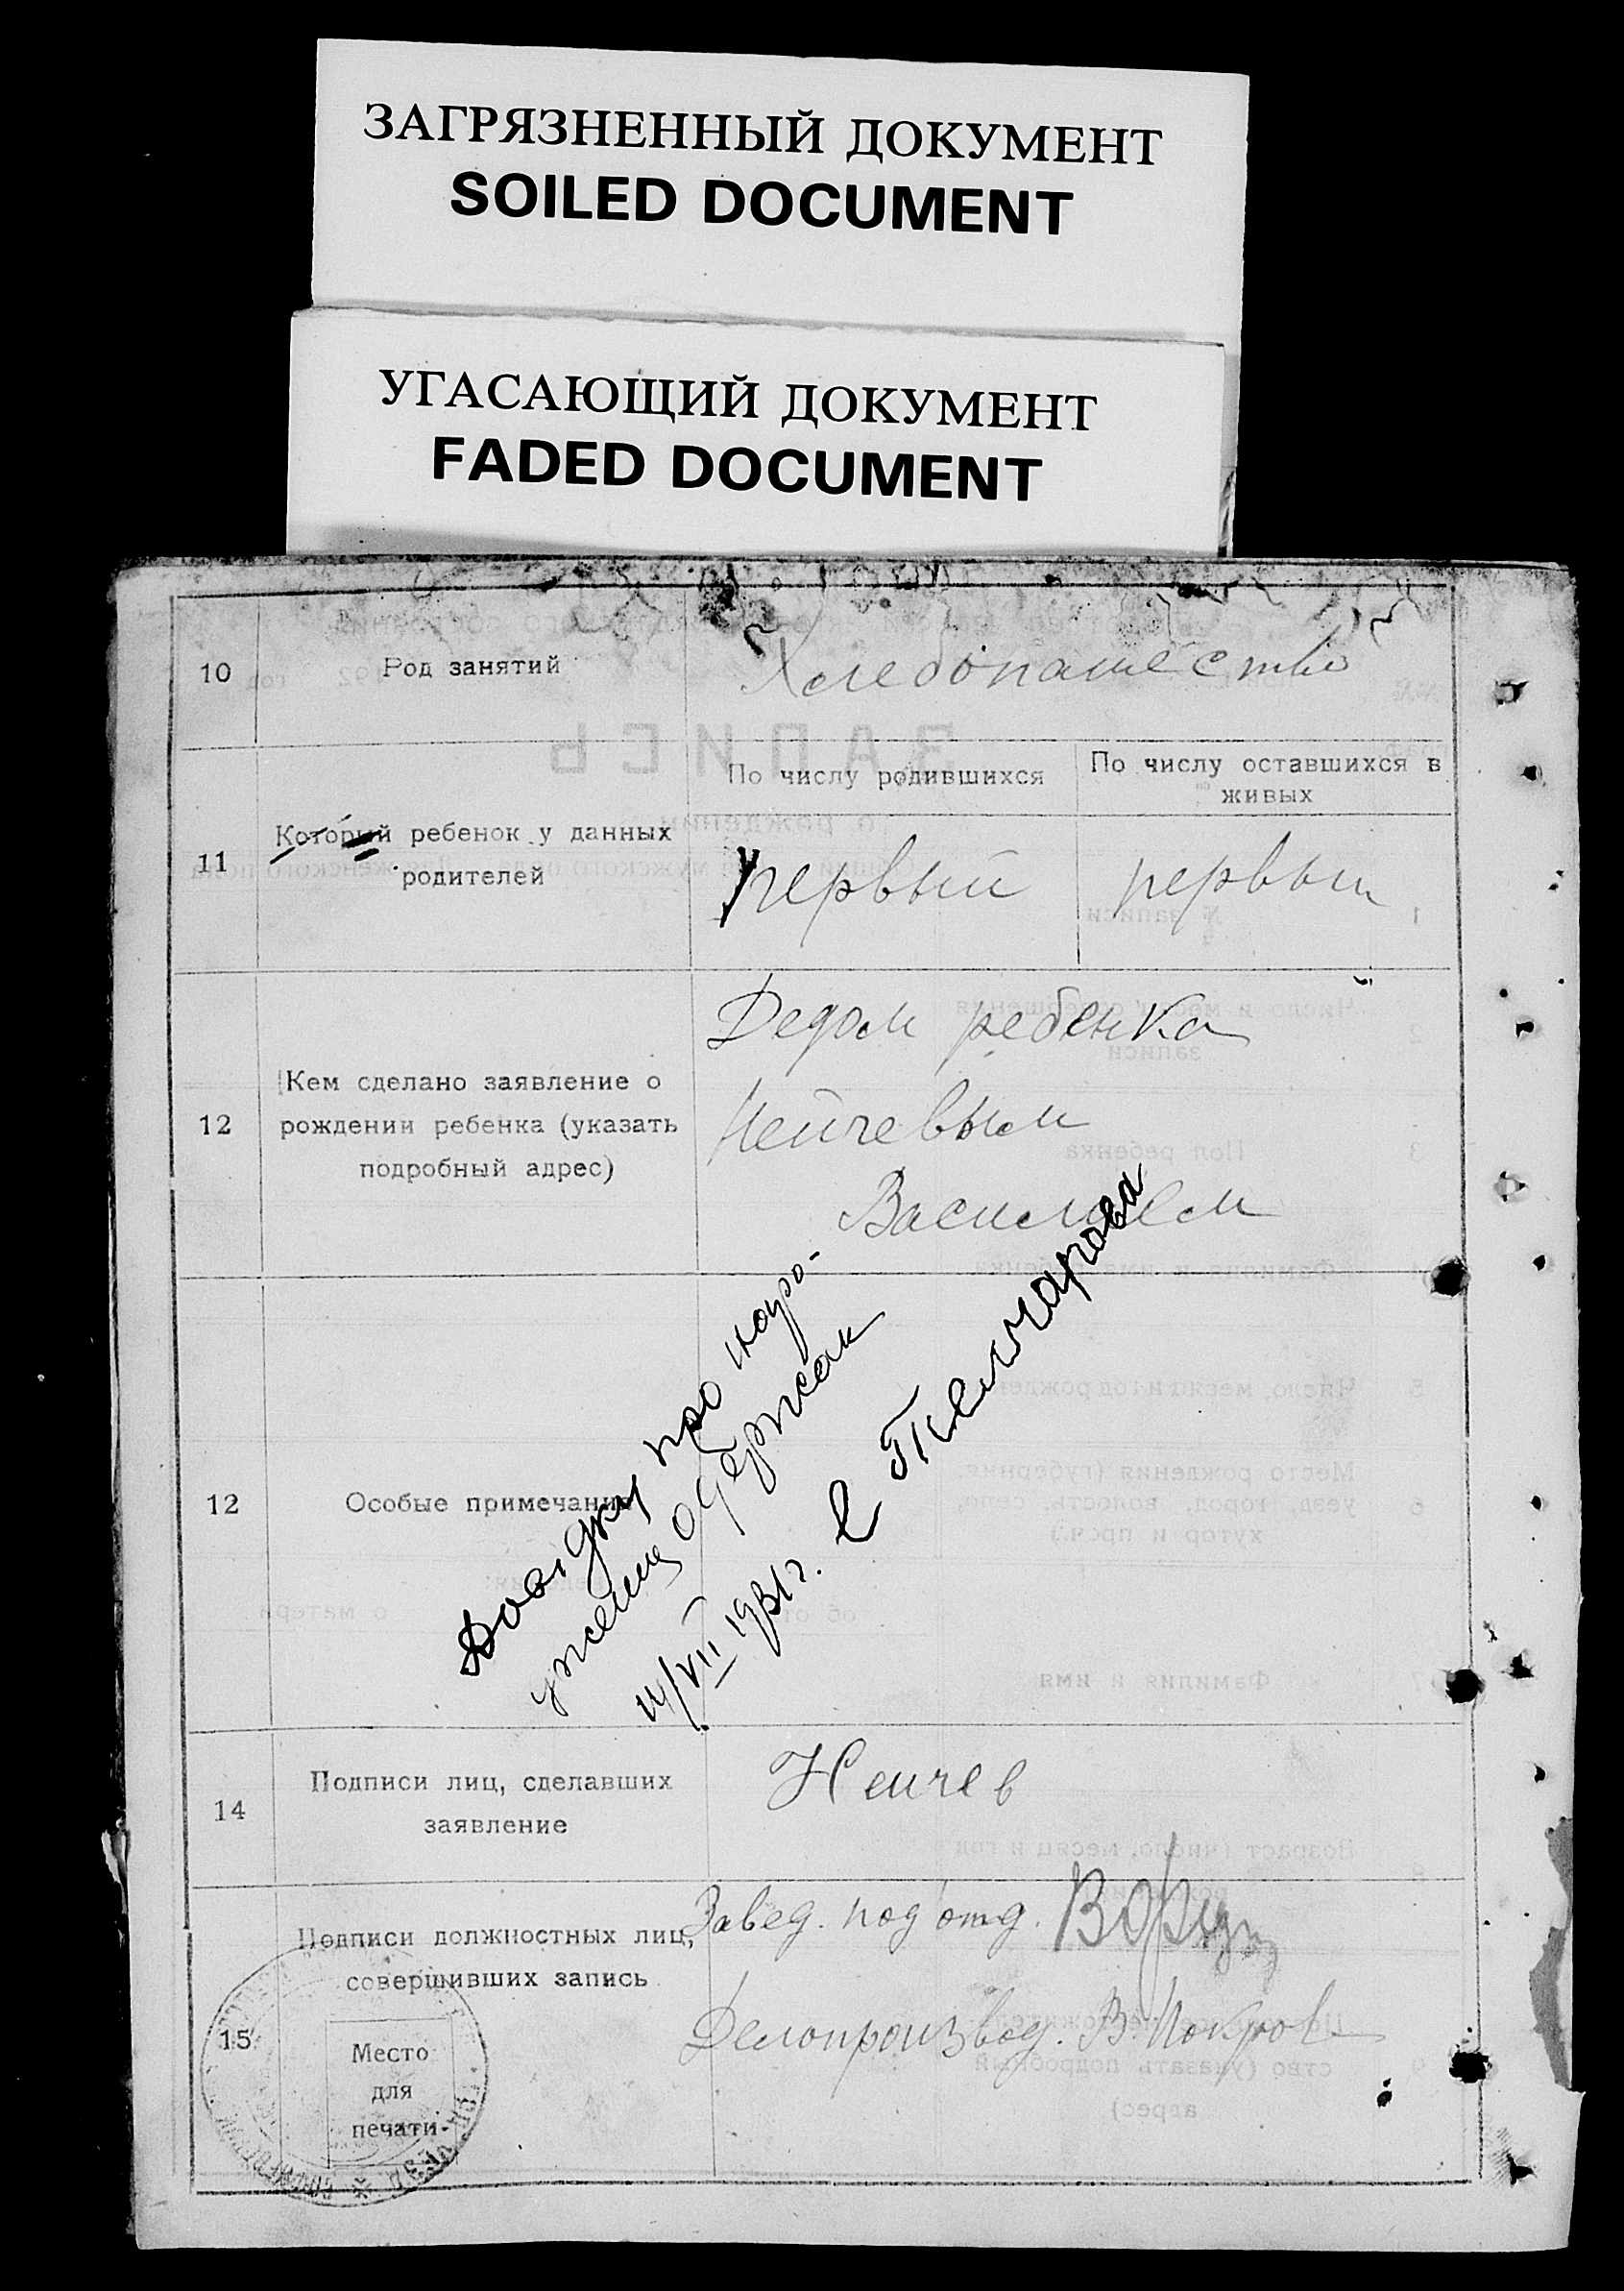 ЗАГРЯЗНЕННЫЙ ДОКУМЕНТ
SOILED DOCUMENT
УГАСАЮЩИЙ ДОКУМЕНТ
FADED DOCUMENT
10
Род занятий
Хлебопашество
11
Который ребенок у данных
родителей
По числу родившихся
первый
По числу оставшихся в
живых
первый
12
Кем сделано заявление о
рождении ребенка (указать
подробный адрес)
Дедом ребенка
Нейчевым
Василием
12
Особые примечания
Довідку про наро-
одержал
14/VII 1931 г.
14
Подписи лиц, сделавших
заявление
Нейчев
15
Подписи должностных лиц,
совершивших запись
Место
для
печати
Завед. подотд.
Делопроизвод. В. Покров